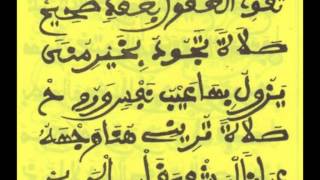 العقول بعقد صحيح
صلاة تجود بخير معنى
يزول بها عيب نفس وروح
صلاة تريك هنا وجهه